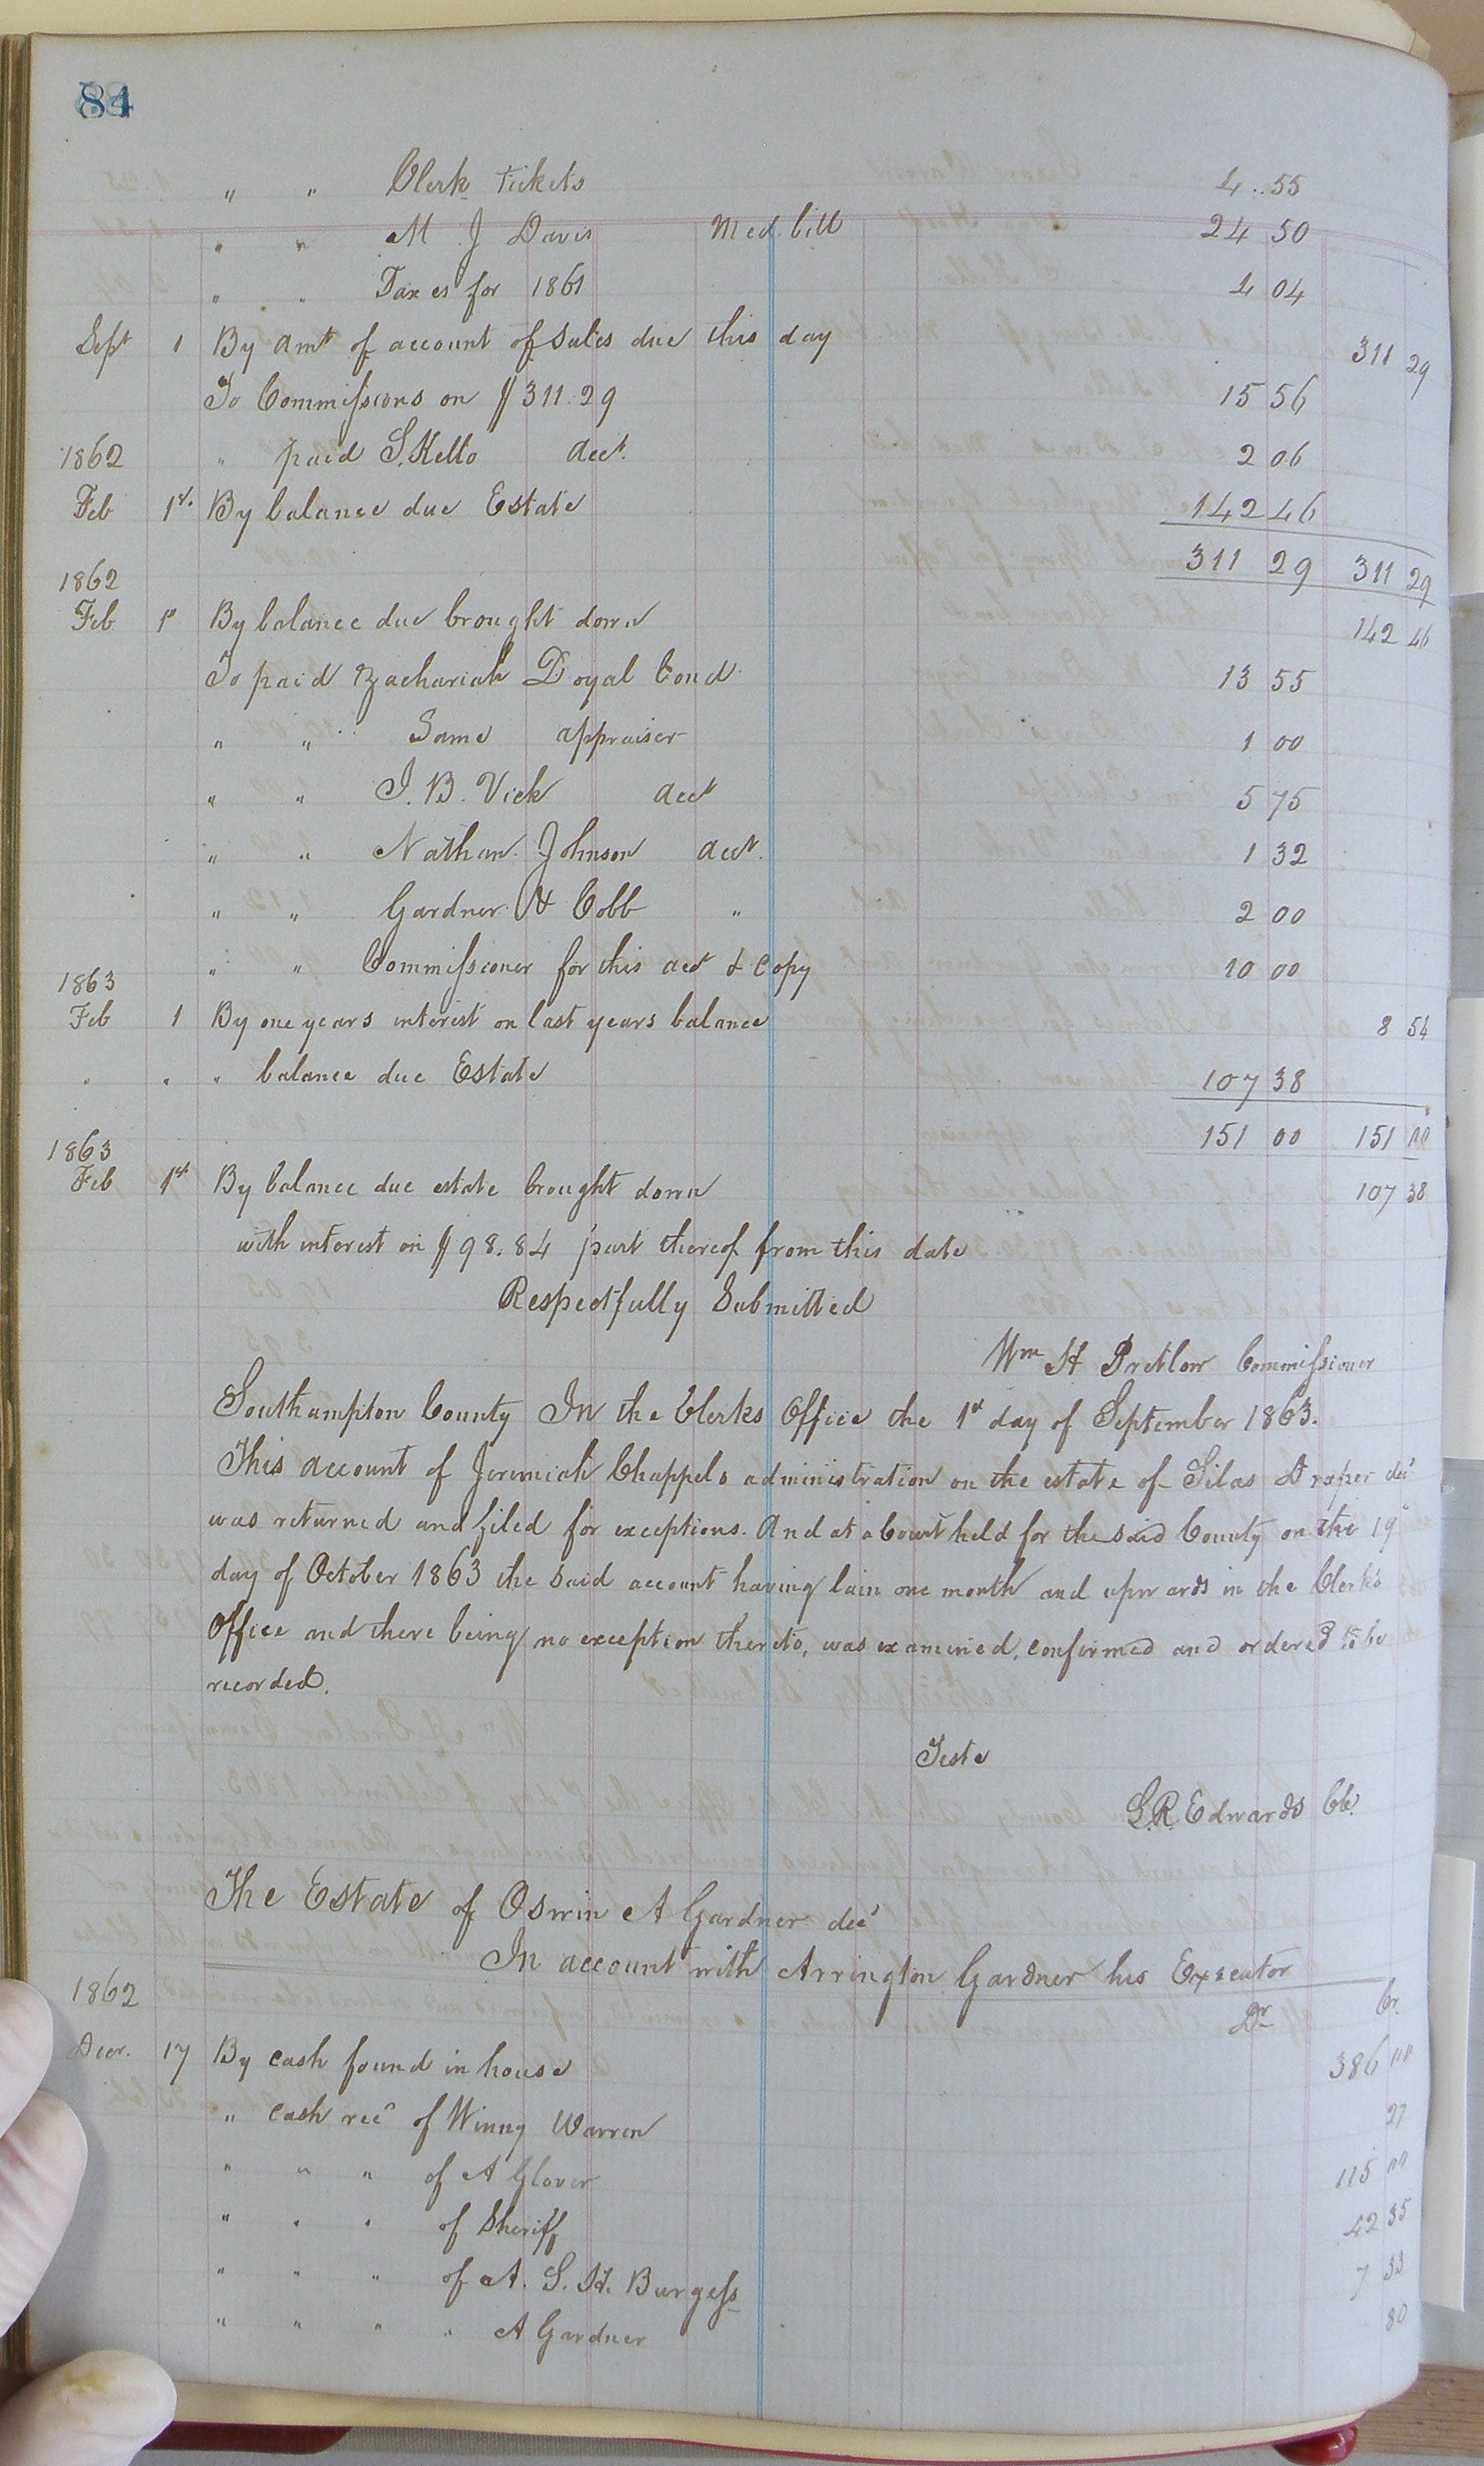 84
" " Clerk tickets 4..55
" " M J Davis Med. bill 24 50
" " Taxes for 1861 4 04
Sept 1 By Amt of account of Sales due this day 311 29
To Commissions on $311.29 15 56
1862 " paid S. Kello acct. 2 06
Feb 1st. By balance due Estate 142 46
311 29 311 29
1862
Feb 1st By balance due brought down 142 46
To paid Zachariah Doyal bond 13 55
" " Same appraiser 1 00
" " J. B. Vick acct 5 75
" " Nathan Johnson acct. 1 32
" " Gardner & Cobb " 2 00
" " Commissioner for this acct & Copy 10 00
1863
Feb 1 By one years interest on last years balance 8 54
" " " balance due Estate 107 38
151 00 151 00
1863
Feb 1st By balance due estate brought down 107 38
with interest on $98.84 part thereof from this date
Respectfully Submitted
Wm H Pretlow Commissioner
Southampton County In the Clerks Office the 1st day of September 1863.
This account of Jeremiah Chappels administration on the estate of Silas Draper decd
was returned and filed for exceptions. And at a Court held for the said County on the 19th
day of October 1863 the said account having lain one month and upwards in the Clerk's
Office and there being no exception thereto, was examined, confirmed and ordered to be
recorded.
Teste
L. R. Edwards Clk.
The Estate of Oswin A Gardner decd
In account with Arrington Gardner his Executor
1862 Dr Cr.
Decr. 17 By cash found in house 386 00
" cash recd of Winny Warren 27
" " " of A Glover 115 00
" " " of Sheriff 42 35
" " " of A. S. H. Burgess 7 33
" " " " A Gardner 80